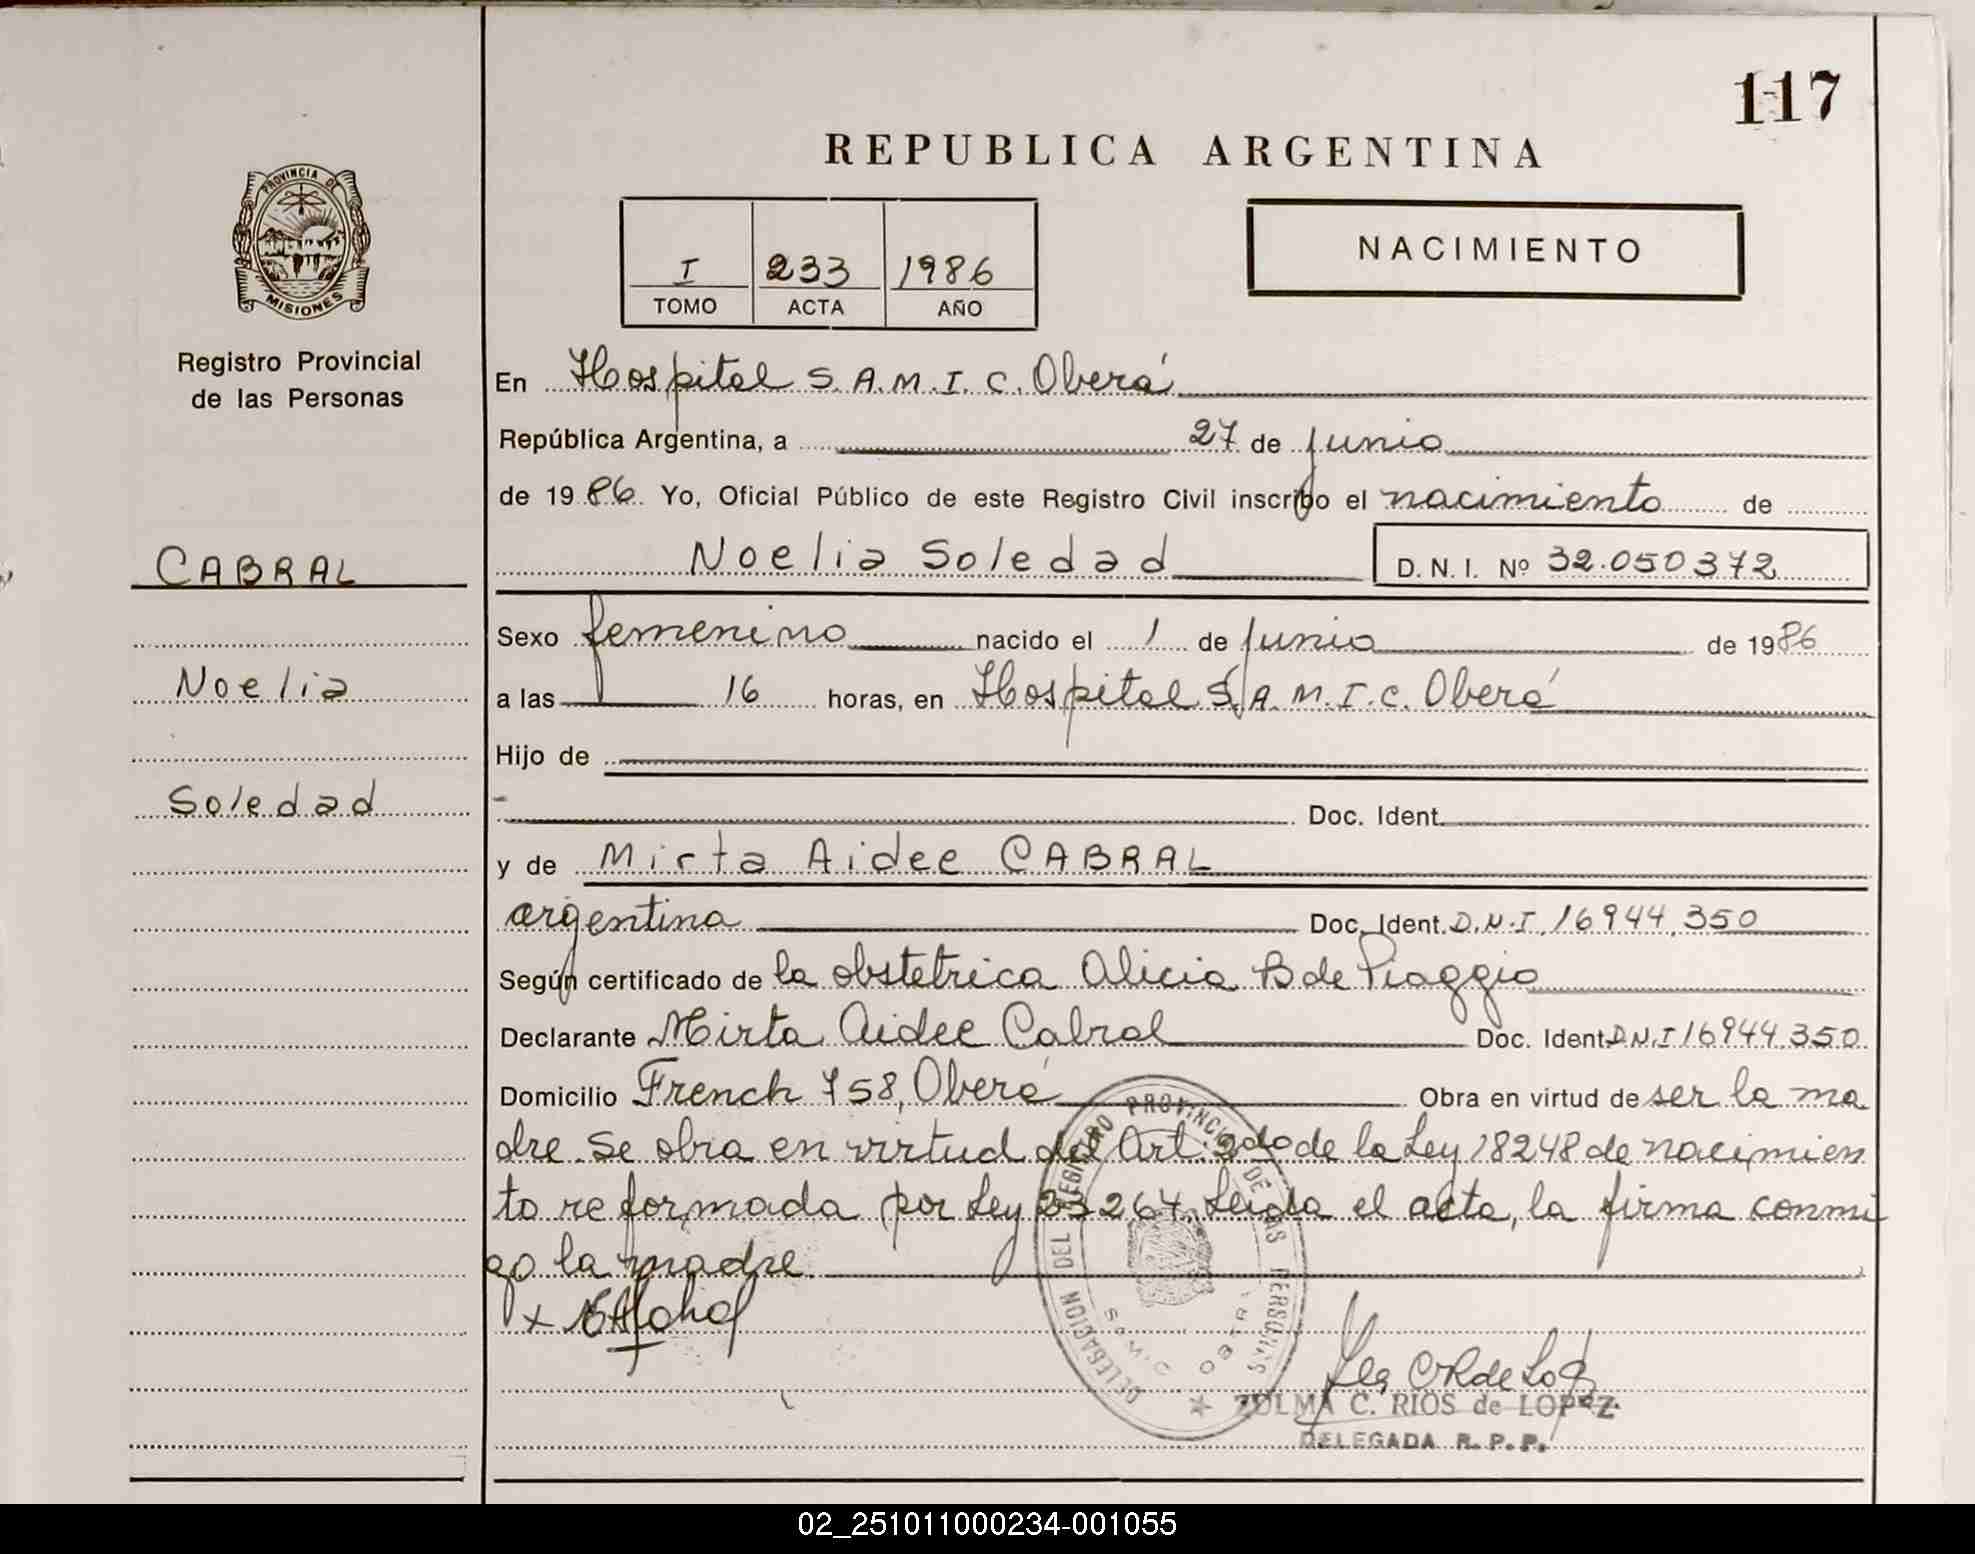 117
REPUBLICA ARGENTINA
PROVINCIA DE
MISIONES
Registro Provincial
de las Personas
I 233 1986
TOMO ACTA AÑO
NACIMIENTO
En Hospital S.A.M.I.C. Oberá
República Argentina, a 27 de junio
de 1986. Yo, Oficial Público de este Registro Civil inscribo el nacimiento de
CABRAL
Noelia Soledad D.N.I. Nº 32.050372
Sexo femenino nacido el 1 de junio de 1986
Noelia
a las 16 horas, en Hospital S.A.M.I.C. Oberá
Hijo de
Soledad
Doc. Ident.
y de Mirta Aidee CABRAL
argentina Doc. Ident. D.N.I. 16944.350
Según certificado de la obstetrica Alicia B de Piaggio
Declarante Mirta Aidee Cabral Doc. Ident. D.N.I 16944.350
Domicilio French 758, Oberá Obra en virtud de ser la ma
dre. Se obra en virtud del Art. 2do de la Ley 18248 de nacimien
to reformada por Ley 23264. Leida el acta, la firma conmi
go la madre.
DELEGACION DEL REGISTRO PROVINCIAL DE LAS PERSONAS
ZULMA C. RIOS de LOPEZ
DELEGADA R.P.P.
02_251011000234-001055